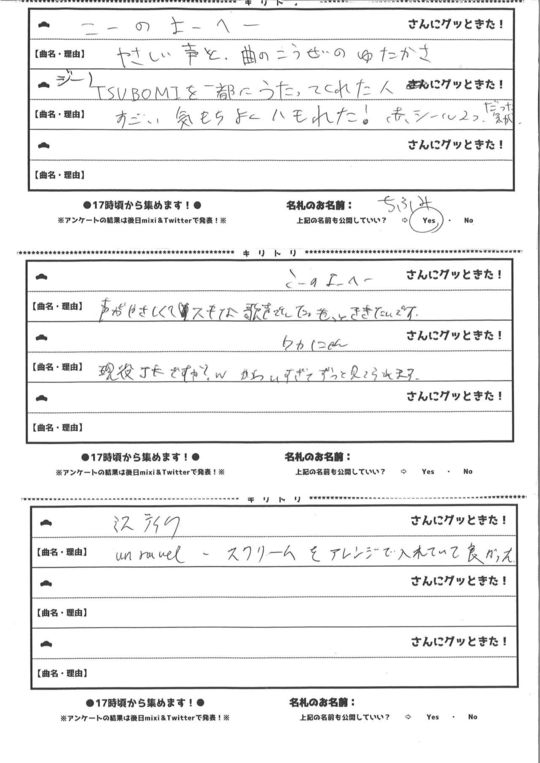 キリトリ
こーのよーへー さんにグッときた！
【曲名・理由】 やさしい声と、曲のこうせいのゆたかさ
TSUBOMIを一部にうたってくれた人 さんにグッときた！
【曲名・理由】 すごい気もちよくハモれた！ 赤、シール2つ、だった気が
さんにグッときた！
【曲名・理由】
●17時頃から集めます！● 名札のお名前： ちふみ
※アンケートの結果は後日mixi＆Twitterで発表！※ 上記の名前も公開していい？ ⇨ Yes ・ No
キリトリ
こーのよーへー さんにグッときた！
【曲名・理由】 声がやさしくてスキな歌声でした。もっとききたいです。
さんにグッときた！
【曲名・理由】 現役JKですか？w かわいすぎてずっと見てられます。
さんにグッときた！
【曲名・理由】
●17時頃から集めます！● 名札のお名前：
※アンケートの結果は後日mixi＆Twitterで発表！※ 上記の名前も公開していい？ ⇨ Yes ・ No
キリトリ
さんにグッときた！
【曲名・理由】 unravel - スクリームをアレンジで入れていて良かった
さんにグッときた！
【曲名・理由】
さんにグッときた！
【曲名・理由】
●17時頃から集めます！● 名札のお名前：
※アンケートの結果は後日mixi＆Twitterで発表！※ 上記の名前も公開していい？ ⇨ Yes ・ No